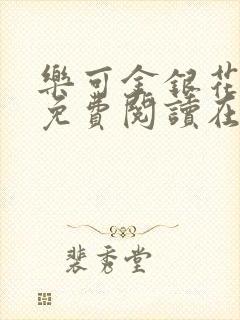 樂可金銀花
免費閱讀在
裴秀堂